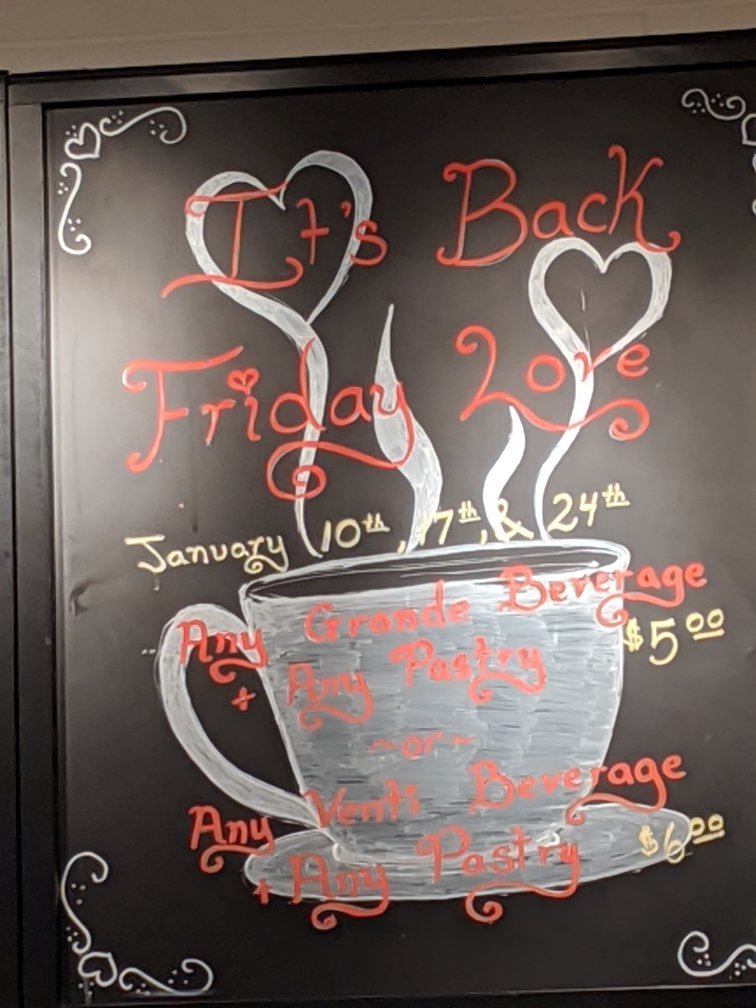 It's Back
Friday Love
January 10th, 17th, & 24th
Any Grande Beverage
+ Any Pastry $5.00
~or~
Any Venti Beverage
+ Any Pastry $6.00